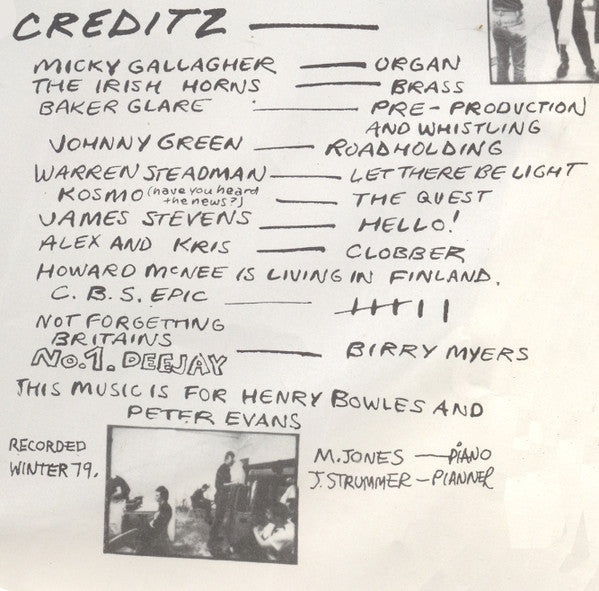 CREDITZ
MICKY GALLAGHER — ORGAN
THE IRISH HORNS — BRASS
BAKER GLARE — PRE-PRODUCTION
AND WHISTLING
JOHNNY GREEN — ROADHOLDING
WARREN STEADMAN — LET THERE BE LIGHT
KOSMO (have you heard
the news?) — THE QUEST
JAMES STEVENS — HELLO!
ALEX AND KRIS — CLOBBER
HOWARD McNEE IS LIVING IN FINLAND.
C.B.S. EPIC —
NOT FORGETTING
BRITAINS
No.1. DEEJAY — BIRRY MYERS
THIS MUSIC IS FOR HENRY BOWLES AND
PETER EVANS
RECORDED
WINTER 79.
M.JONES — PIANO
J.STRUMMER — PIANNER